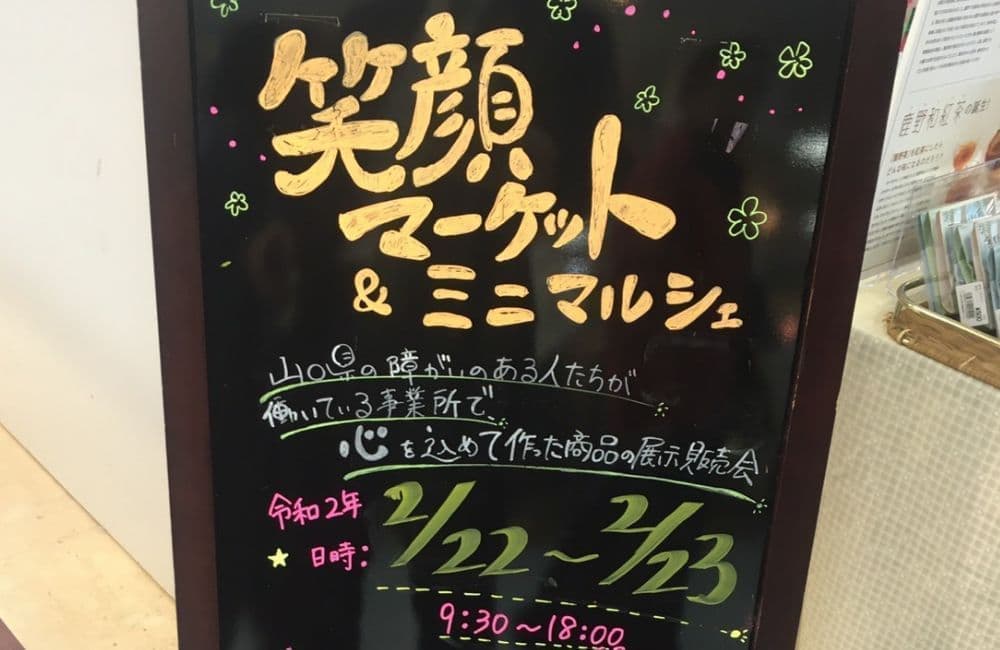 笑顔
マーケット
&ミニマルシェ
山口県の障がいのある人たちが
働いている事業所で、
心を込めて作った商品の展示販売会
令和2年
日時: 2/22～2/23
9:30～18:00
鹿野和紅茶の誕生!